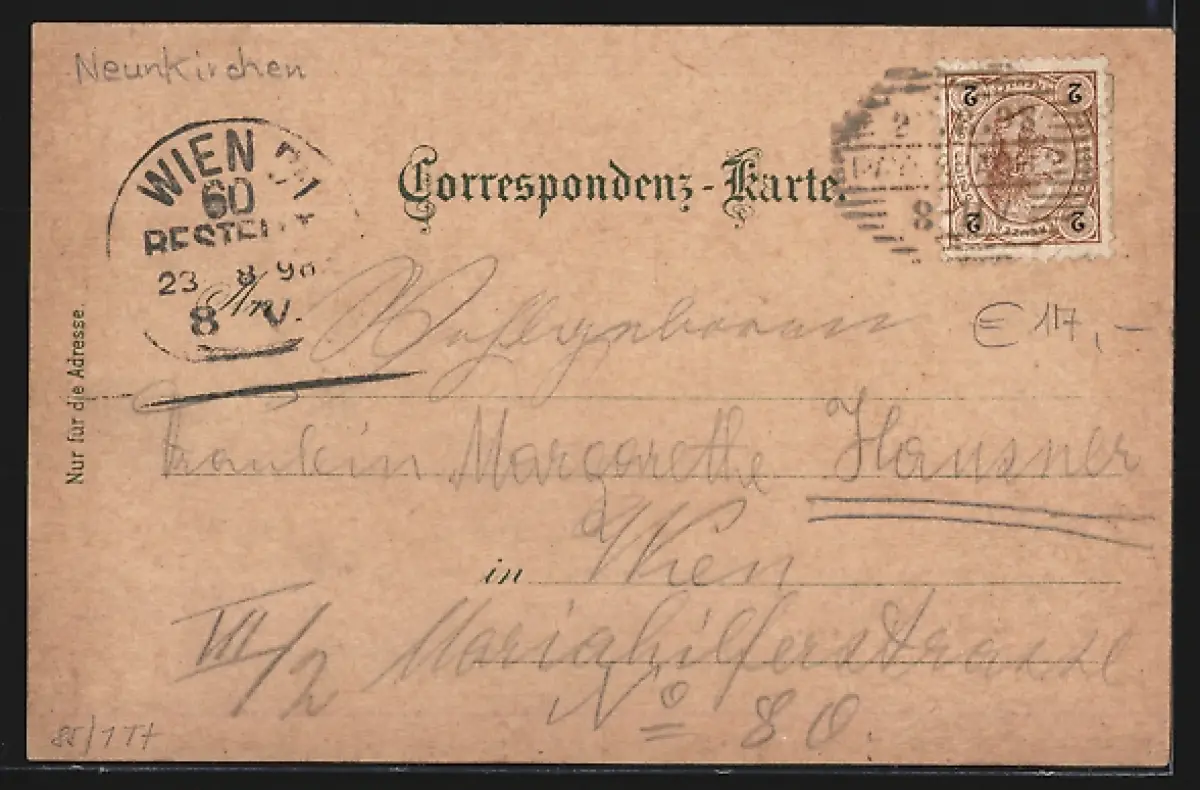 Neunkirchen
WIEN
60
BESTELLT
23 8 96
8 V.
Correspondenz-Karte.
2 2
2 2
8
An
Wohlgeboren
€ 117,-
Nur für die Adresse.
Fräulein Margarethe Hausner
in Wien
VII/2 Mariahilferstrasse
No 80.